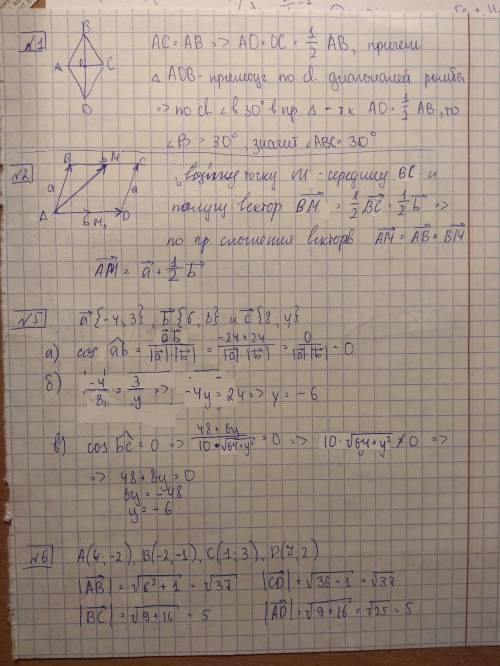 №1
B
A
C
D
AC = AB => AO = OC = 1/2 AB, причем
△ AOB - прямоуг по св. диагоналей ромба
=> по св. ∠ в 30° в пр. △ - тк AO = 1/2 AB, то
∠B = 30°, значит ∠ABC = 30°
№2
B b M C
a a
A b M₁ D
точку M - середину BC и
получу вектор BM = 1/2 BC = 1/2 b =>
по пр. сложения векторов AM = AB + BM
AM = a + 1/2 b
№5 a {-4, 3}, b {6, 8} и c {8, y}
а) cos ab = ab / |a|·|b| = -24+24 / |a|·|b| = 0 / |a|·|b| = 0
б) -4/8 = 3/y => -4y = 24 => y = -6
в) cos bc = 0 => 48+8y / 10·√64+y² = 0 => 10·√64+y² ≠ 0 =>
=> 48+8y = 0
8y = -48
y = -6
№6 A(4, -2), B(-2, -1), C(1, 3), D(7, 2)
|AB| = √6²+1 = √37 |CD| = √36+1 = √37
|BC| = √9+16 = 5 |AD| = √9+16 = √25 = 5